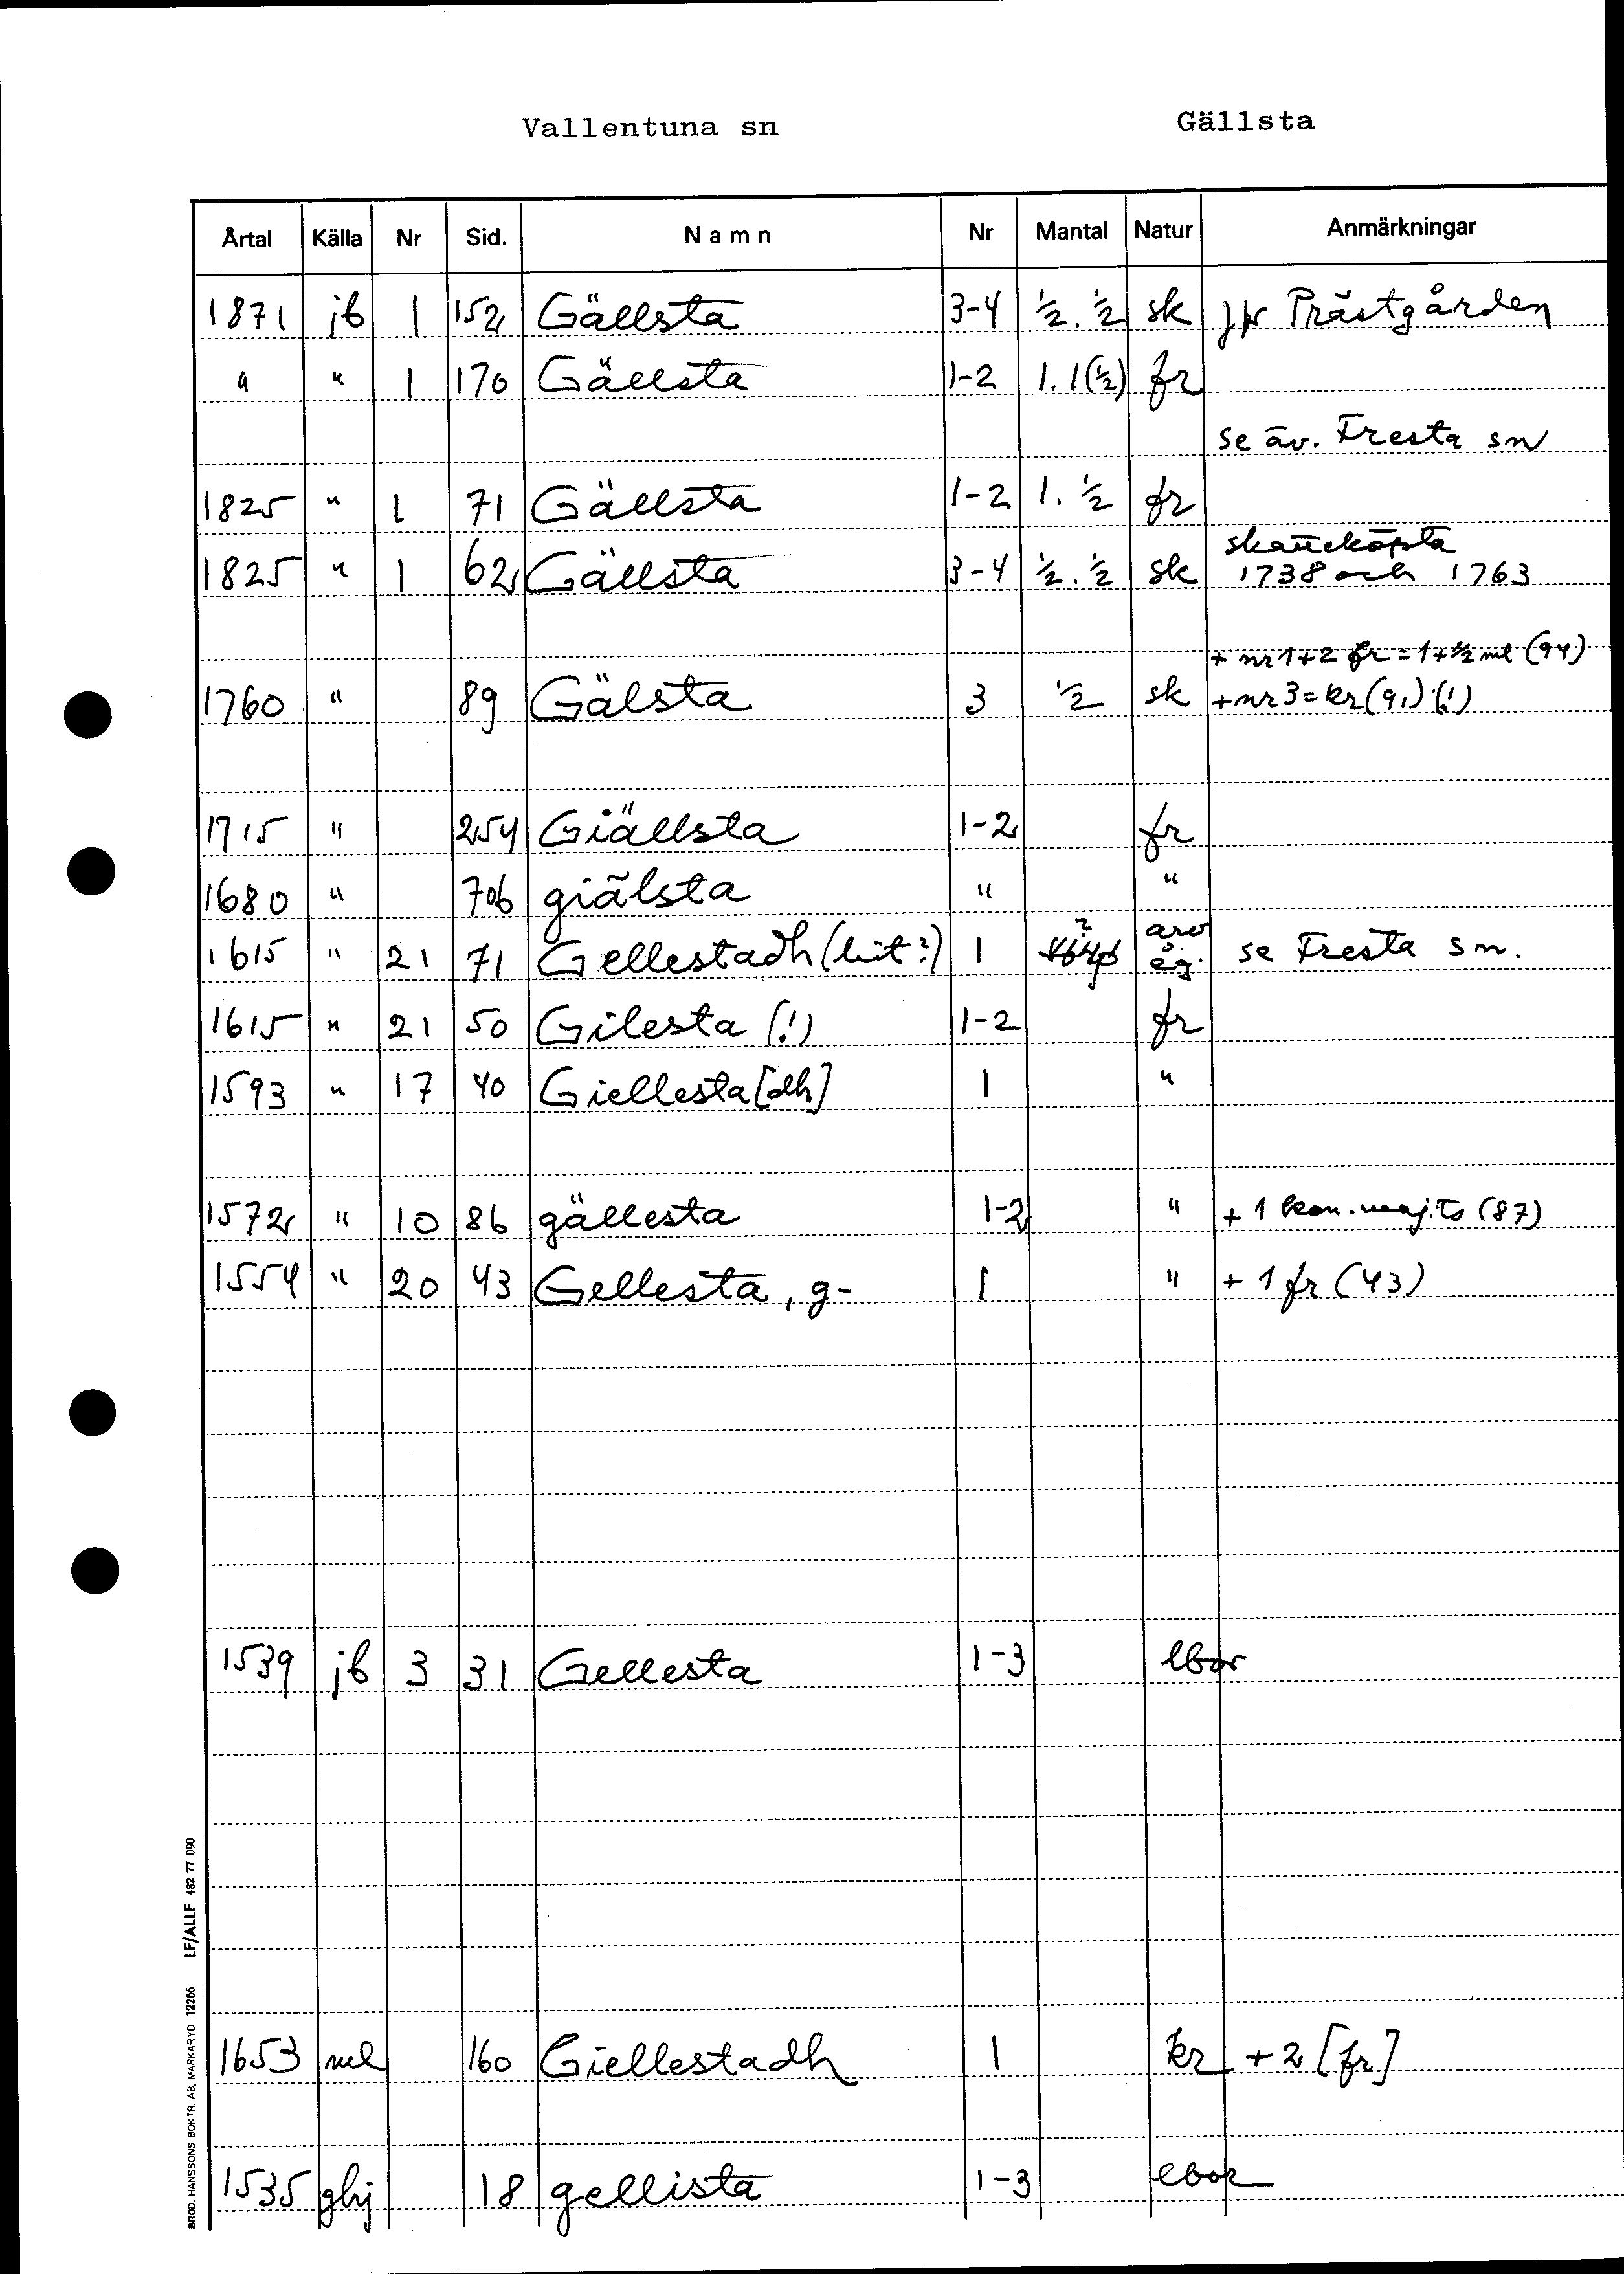 Vallentuna sn Gällsta
Årtal Källa Nr Sid. Namn Nr Mantal Natur Anmärkningar
1871 jb 1 152 Gällsta 3-4 ½. ½ sk jfr Prästgården
" " 1 170 Gällsta 1-2 1. 1 (½) fr
se äv. Fresta sn
1825 " 1 71 Gällsta 1-2 1. ½ fr
skatteköpta
1825 " 1 62 Gällsta 3-4 ½. ½ sk 1738 och 1763
+ nr 1+2 fr = 1+½ ml (94)
1760 " 89 Gälsta 3 ½ sk + nr 3 = kr (91) (!)
1715 " 254 Giällsta 1-2 fr
1680 " 706 giälsta " "
1615 " 21 71 Gellestadh (hit?) 1 ? arv o. eg. se Fresta sn.
1615 " 21 50 Gilesta (!) 1-2 fr
1593 " 17 40 Giellesta[dh] 1 "
1572 " 10 86 gällesta 1-2 " + 1 kon. maj:ts (87)
1554 " 20 43 Gellesta, g- 1 " + 1 fr (43)
1539 jb 3 31 Gellesta 1-3
1653 ml 160 Giellestadh 1 kr + 2 [fr]
1535 ghj 18 gellista 1-3
BROD. HANSSONS BOKTR. AB, MARKARYD 12266 LF/ALLF 482 77 090